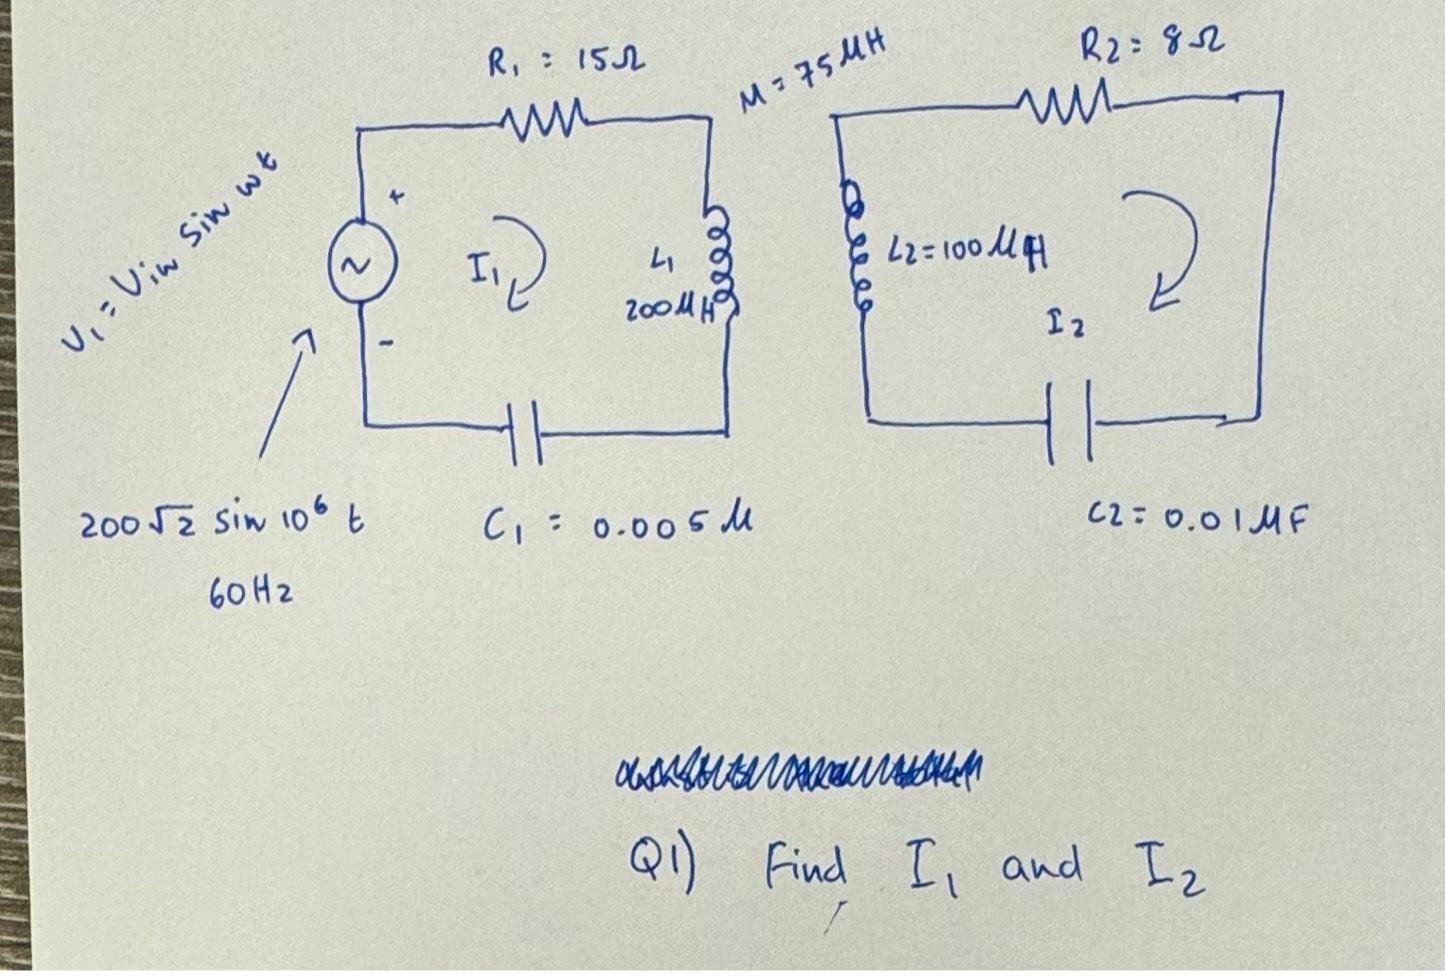 R₁ = 15Ω
M = 75 μH
R2 = 8Ω
V₁ = Vin sin wt
+
I₁
L₁
200 μH
L2 = 100 μH
I₂
-
200√2 sin 10⁶ t
60Hz
C₁ = 0.005 μ
C2 = 0.01 μF
Q1) Find I₁ and I₂